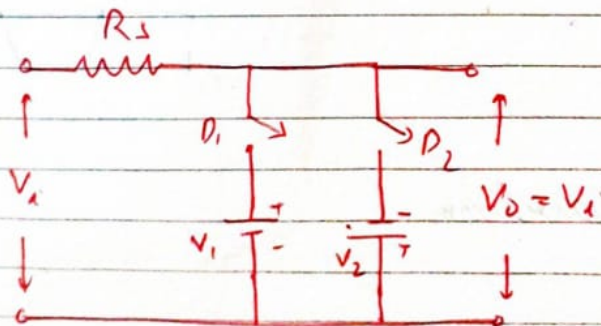 Rs
D₁
D₂
Vᵢ
V₁
+
-
V₂
-
+
V₀ = Vᵢ